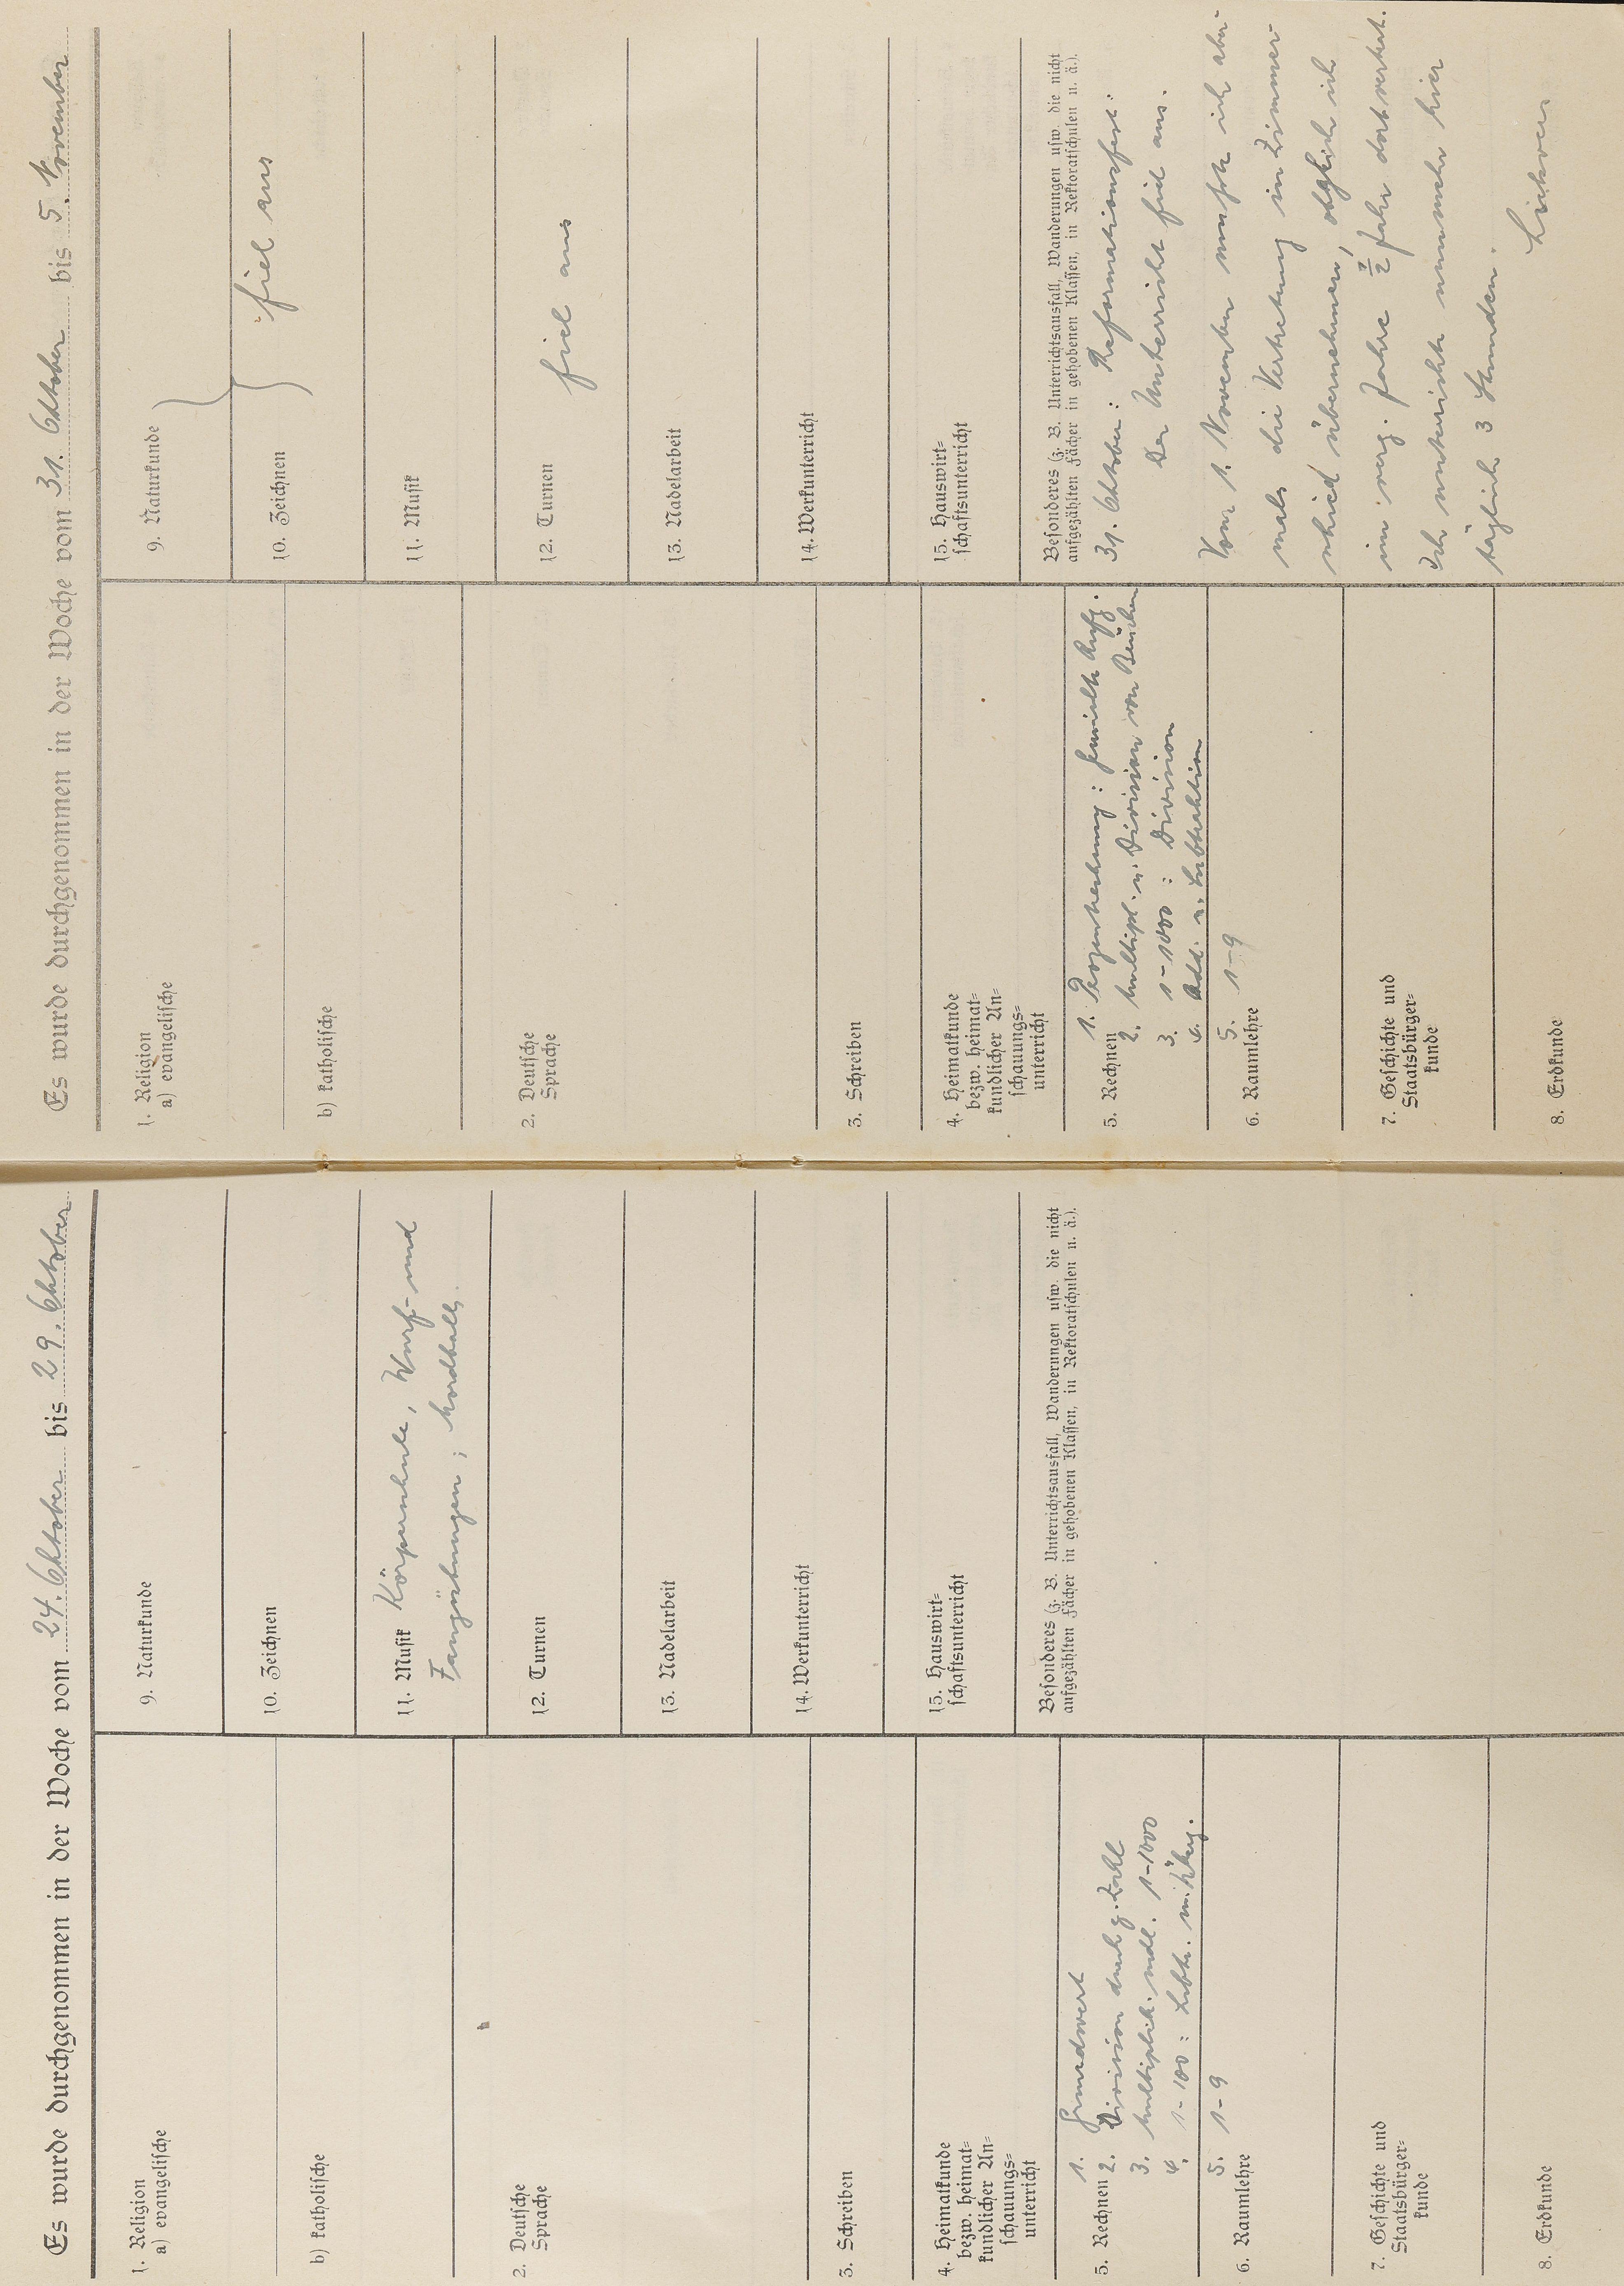 Es wurde durchgenommen in der Woche vom 24. Oktober bis 29. Oktober
1. Religion
a) evangelische
b) katholische
2. Deutsche
Sprache
3. Schreiben
4. Heimatkunde
bezw. heimat-
kundlicher An-
schauungs-
unterricht
1. Grundwert
5. Rechnen 2. Division durch g. Zahl
3. Multiplik. mdl. 1-1000
4. 1-100: Subtr. m. Überg.
5. 1-9
6. Raumlehre
7. Geschichte und
Staatsbürger-
kunde
8. Erdkunde
9. Naturkunde
10. Zeichnen
11. Musik Körperschule, Wurf- und
Fangübungen; Handball
12. Turnen
13. Nadelarbeit
14. Werkunterricht
15. Hauswirt-
schaftsunterricht
Besonderes (z. B. Unterrichtsausfall, Wanderungen usw. die nicht
aufgezählten Fächer in gehobenen Klassen, in Rektoratschulen u. ä.).
Es wurde durchgenommen in der Woche vom 31. Oktober bis 5. November
1. Religion
a) evangelische
b) katholische
2. Deutsche
Sprache
3. Schreiben
4. Heimatkunde
bezw. heimat-
kundlicher An-
schauungs-
unterricht
1. Prozentrechnung: Gemischte Aufg.
5. Rechnen
2. Multipl. u. Division von Brüchen
3. 1-1000: Division
4. Add. u. Subtraktion
5. 1-9
6. Raumlehre
7. Geschichte und
Staatsbürger-
kunde
8. Erdkunde
9. Naturkunde
fiel aus
10. Zeichnen
11. Musik
12. Turnen fiel aus
13. Nadelarbeit
14. Werkunterricht
15. Hauswirt-
schaftsunterricht
Besonderes (z. B. Unterrichtsausfall, Wanderungen usw. die nicht
aufgezählten Fächer in gehobenen Klassen, in Rektoratschulen u. ä.).
31. Oktober: Reformationsfest.
Der Unterricht fiel aus.
Vom 1. November musste ich aber-
mals die Vertretung in Zimmer-
schied übernehmen, obgleich ich
im verg. Jahre ½ Jahr dort vertrat.
Ich unterrichte nunmehr hier
täglich 3 Stunden.